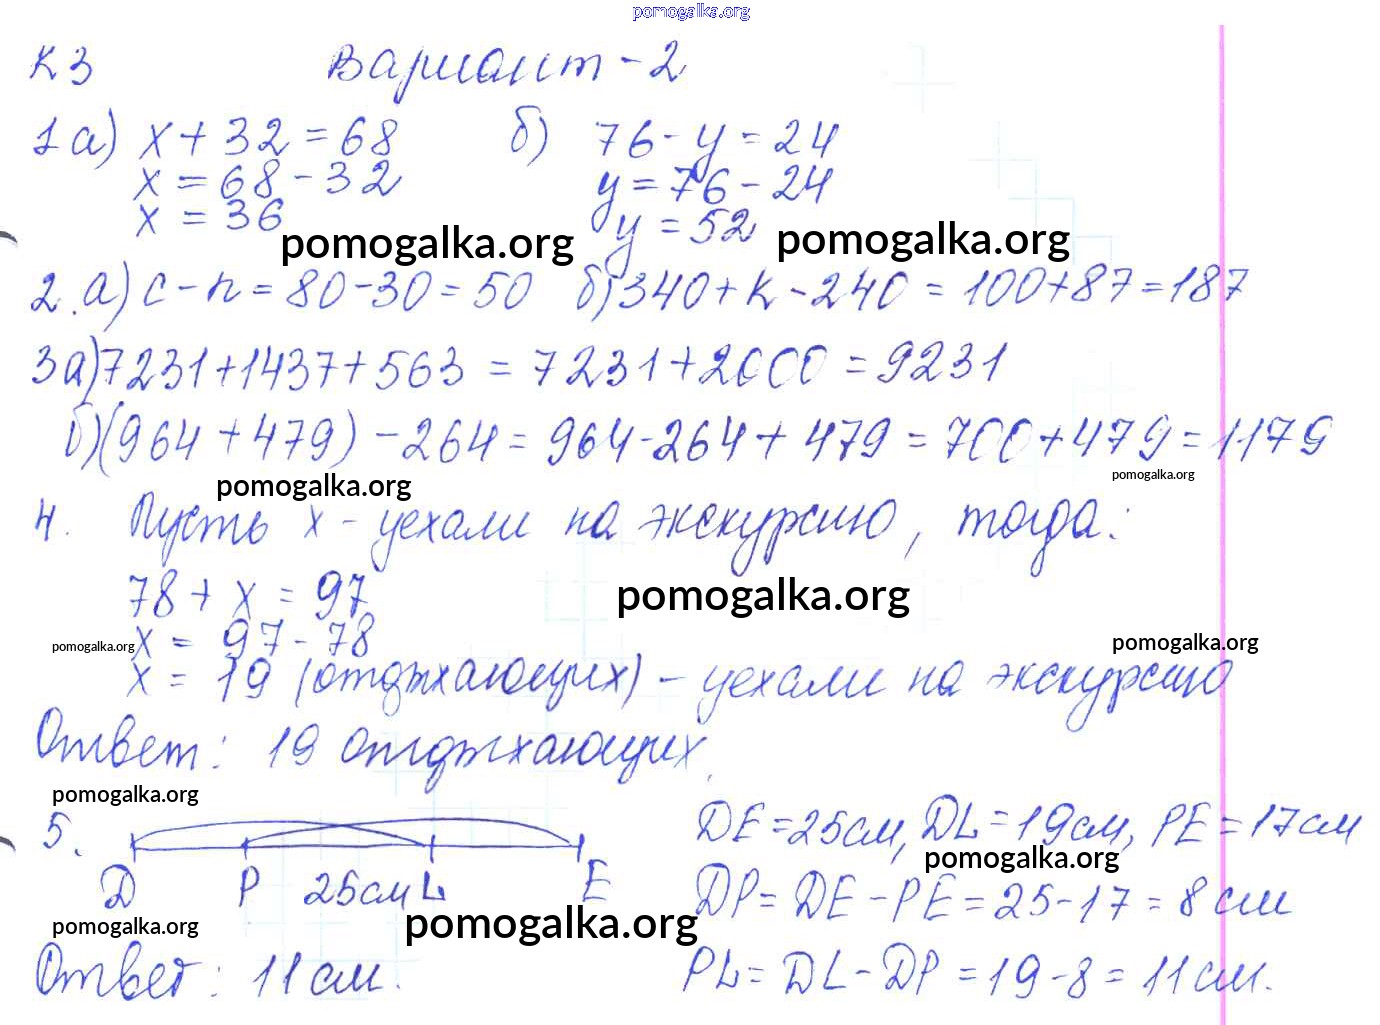 pomogalka.org
К 3 Вариант - 2
1 а) x + 32 = 68 б) 76 - y = 24
x = 68 - 32 y = 76 - 24
x = 36 y = 52
pomogalka.org pomogalka.org
2. а) c - n = 80 - 30 = 50 б) 340 + k - 240 = 100 + 87 = 187
3 а) 7231 + 1437 + 563 = 7231 + 2000 = 9231
б) (964 + 479) - 264 = 964 - 264 + 479 = 700 + 479 = 1179
pomogalka.org pomogalka.org
4. Пусть x - уехали на экскурсию, тогда:
78 + x = 97
pomogalka.org
x = 97 - 78
pomogalka.org pomogalka.org
x = 19 (отдыхающих) - уехали на экскурсию
Ответ: 19 отдыхающих
pomogalka.org
5. DE = 25 см, DL = 19 см, PE = 17 см
pomogalka.org
D P 25 см L E DP = DE - PE = 25 - 17 = 8 см
pomogalka.org pomogalka.org
Ответ: 11 см. PL = DL - DP = 19 - 8 = 11 см.